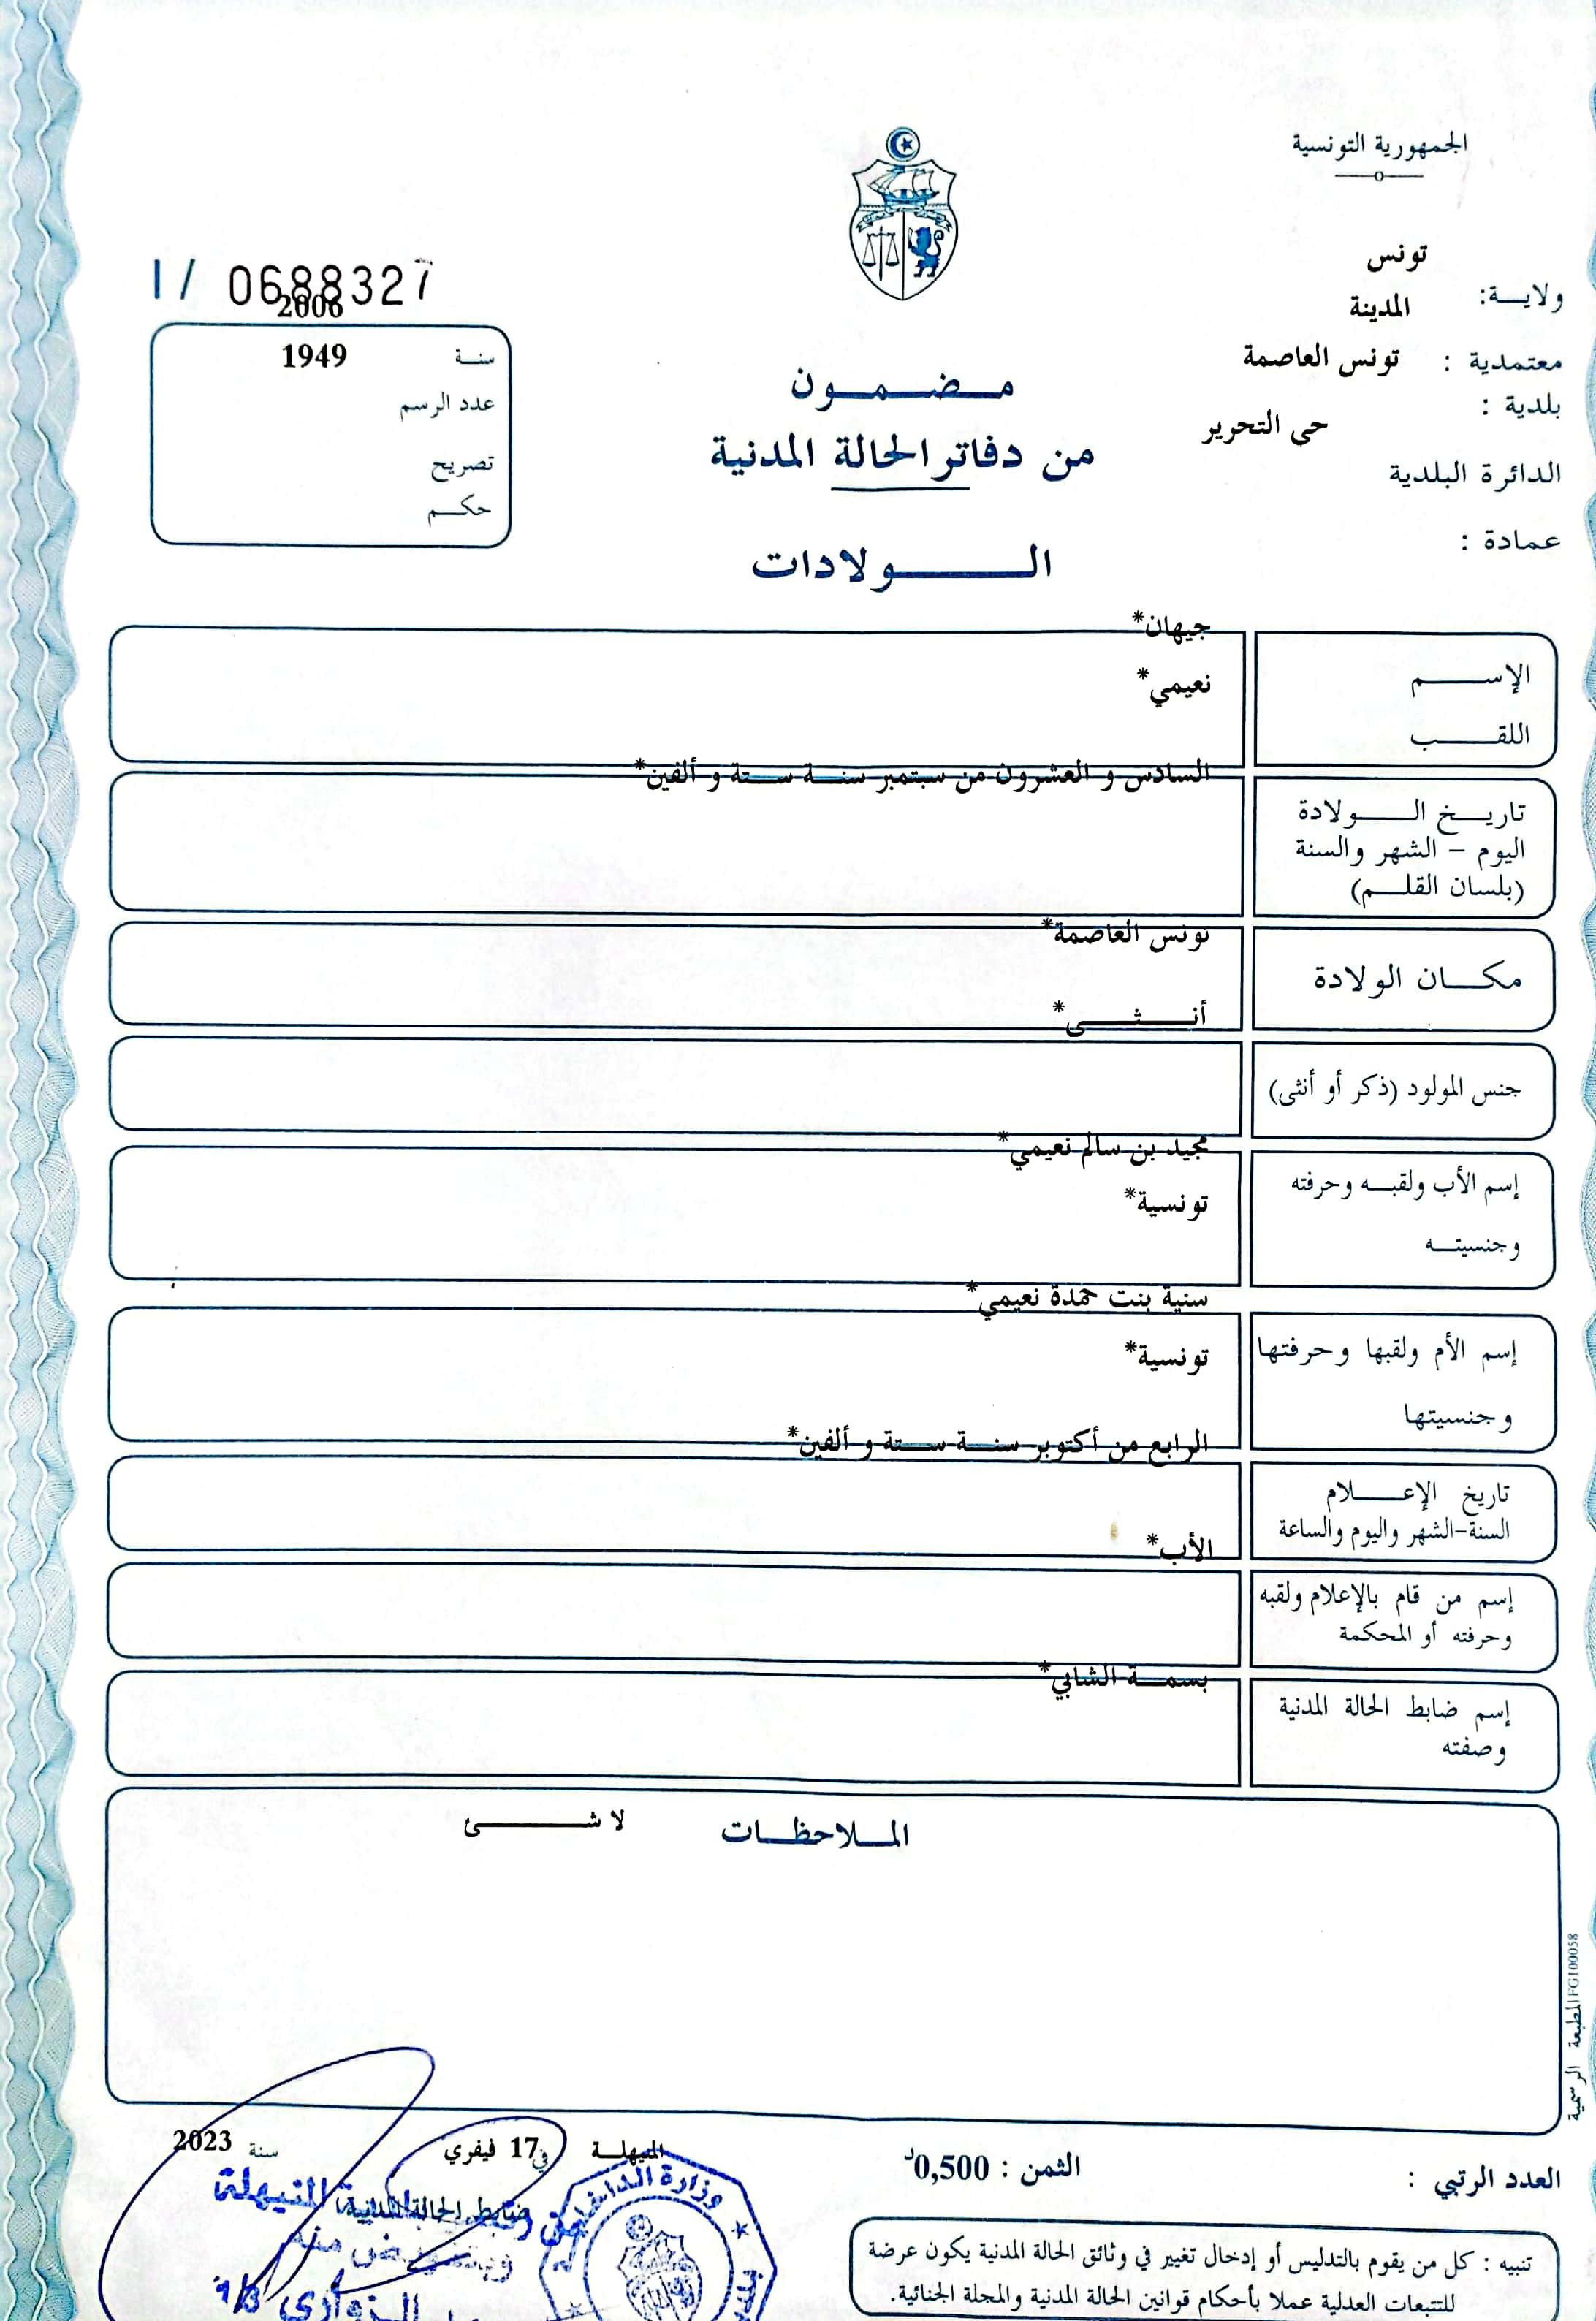 الجمهورية التونسية
تونس
ولايـــة:
المدينة
معتمدية : تونس العاصمة
بلدية :
حى التحرير
الدائرة البلدية
عمادة :
I / 0688327
2006
سنــة 1949
عدد الرسم
تصريح
حكــم
مـضـمـون
من دفاتر الحالة المدنية
الــــولادات
جيهان*
الإســــم
نعيمي*
اللقــــب
السادس و العشرون من سبتمبر سنــة ستــة و ألفين*
تاريــخ الــــولادة
اليوم – الشهر والسنة
(بلسان القلــم)
تونس العاصمة*
مكــان الولادة
أنــــثــــى*
جنس المولود (ذكر أو أنثى)
مجيد بن سالم نعيمي*
إسم الأب ولقبــه وحرفته
تونسية*
وجنسيتــه
سنية بنت حمدة نعيمي*
إسم الأم ولقبها وحرفتها
تونسية*
وجنسيتها
الرابع من أكتوبر سنــة ستــة و ألفين*
تاريخ الإعــــلام
السنة-الشهر واليوم والساعة
الأب*
إسم من قام بالإعلام ولقبه
وحرفته أو المحكمة
بسمــة الشابي*
إسم ضابط الحالة المدنية
وصفته
المــلاحظــات
لا شــــئ
المطبعة الرسمية FG100058
العدد الرتبي :
الثمن : 0,500د
في 17 فيفري سنة 2023
ضابط الحالة المدنية
وزارة الداخلية
النيهلة
وبتفويض منه
الزواري
تنبيه : كل من يقوم بالتدليس أو إدخال تغيير في وثائق الحالة المدنية يكون عرضة
للتتبعات العدلية عملا بأحكام قوانين الحالة المدنية والمجلة الجنائية.